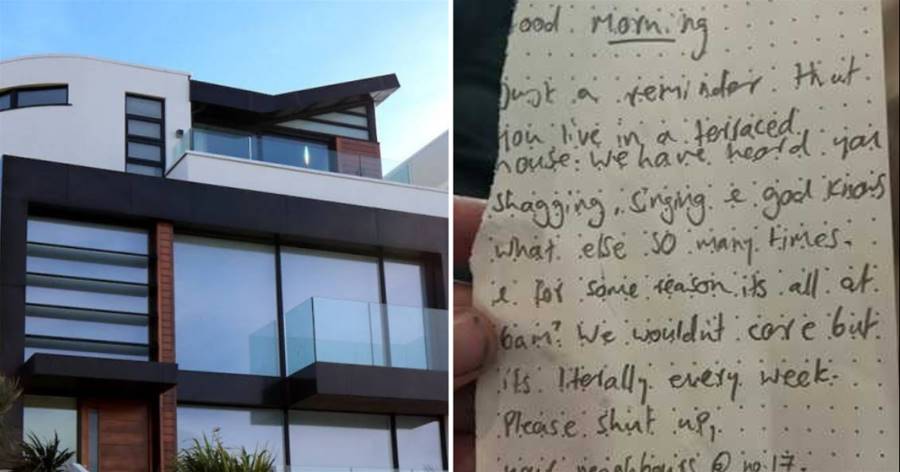 ood Morning
Just a reminder that
you live in a terraced
house. We have heard you
shagging, singing & god knows
what else so many times.
& for some reason its all at
6am? We wouldn't care but
its literally every week.
Please shut up,
your neighbours @ no 17